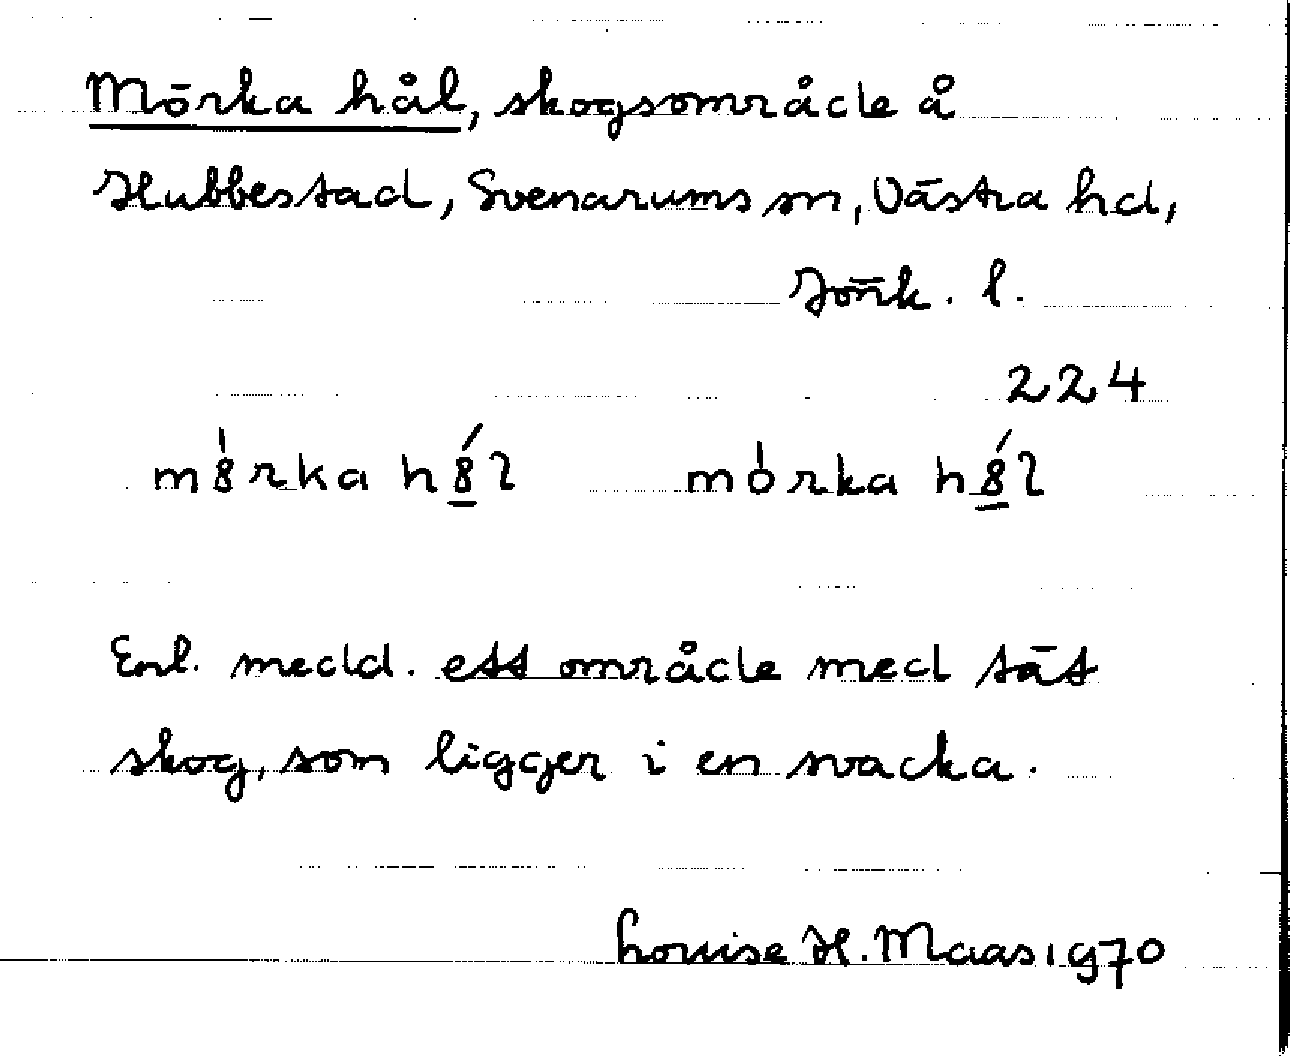 Mörka hål, skogsområde å
Hubbestad, Svenarums sn, Västra hd,
Jönk. l.
224
m8̍rka h8̲́l mo̍rka h8̲́l
Enl. medd. ett område med tät
skog, som ligger i en svacka.
Louise H. Maas 1970